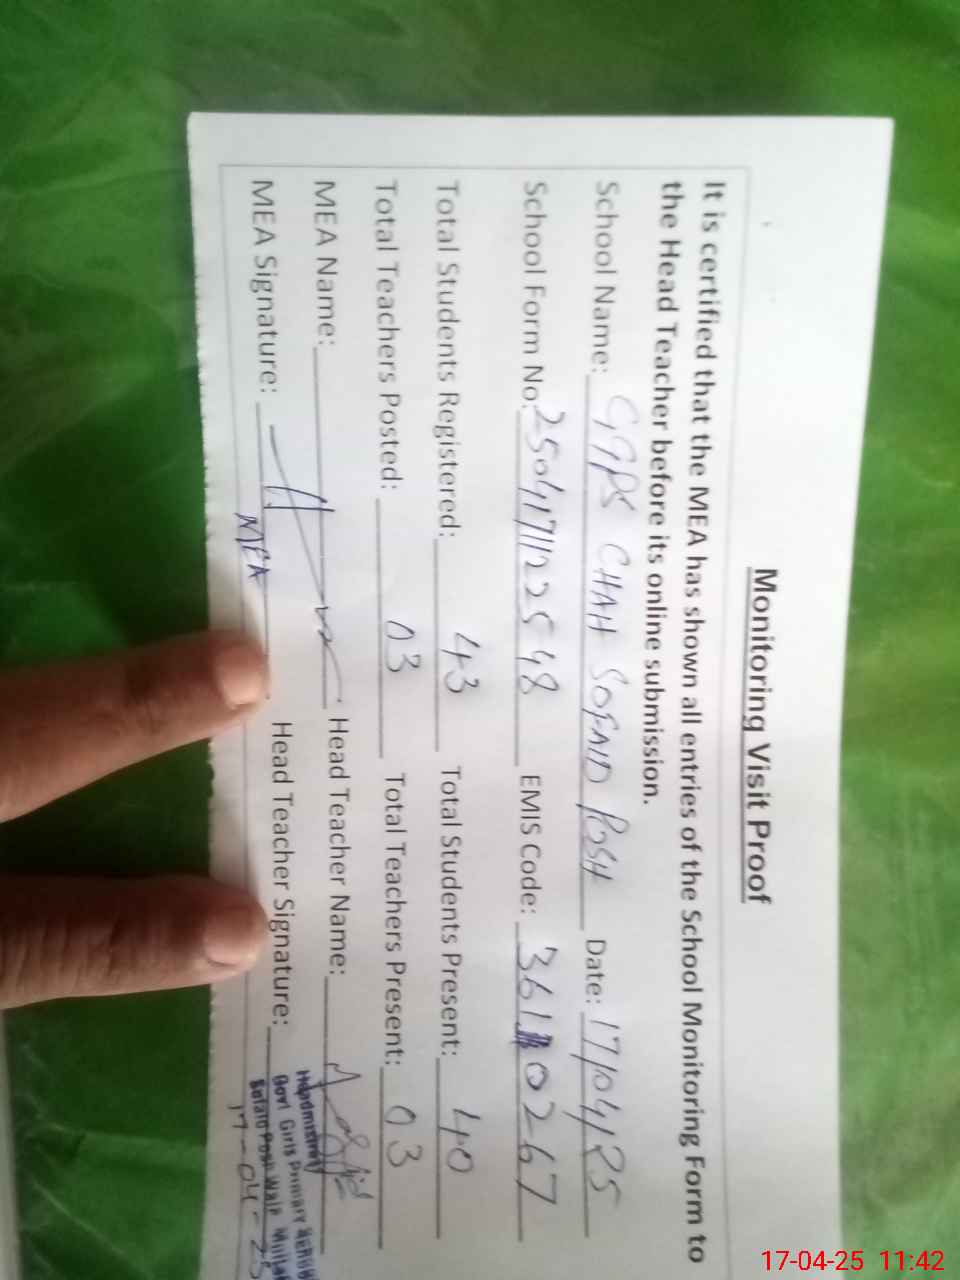 Monitoring Visit Proof
It is certified that the MEA has shown all entries of the School Monitoring Form to
the Head Teacher before its online submission.
School Name: GGPS CHAH SOFAID POSH Date: 17/04/25
School Form No: 25041711225 48 EMIS Code: 361 10267
Total Students Registered: 43 Total Students Present: 40
Total Teachers Posted: 03 Total Teachers Present: 03
MEA Name: Head Teacher Name:
MEA Signature: Head Teacher Signature:
MEA
Headmistress
Govt Girls Primary School
Sofaid Posh Wala
17-04-25
17-04-25 11:42